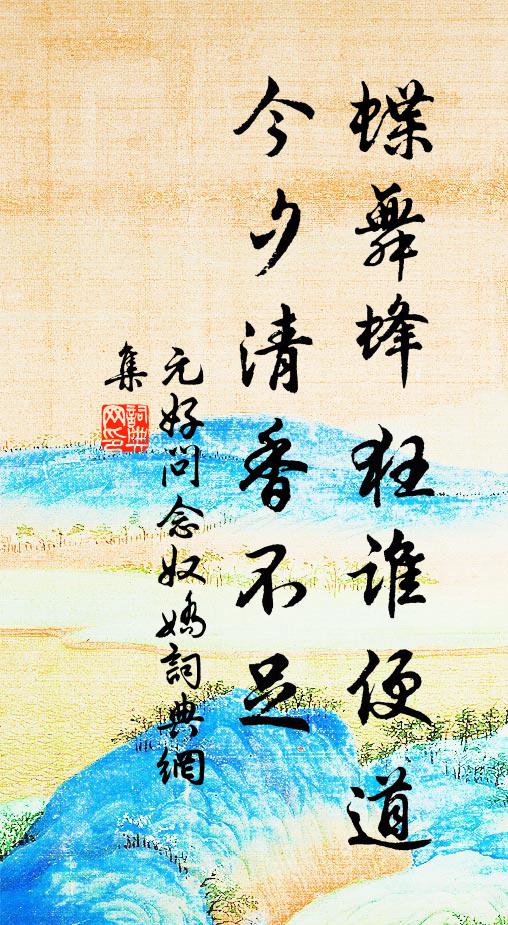 蝶舞蜂狂谁便道
今夕清香不足
元好问念奴嬌詞典網
集
詞典網印